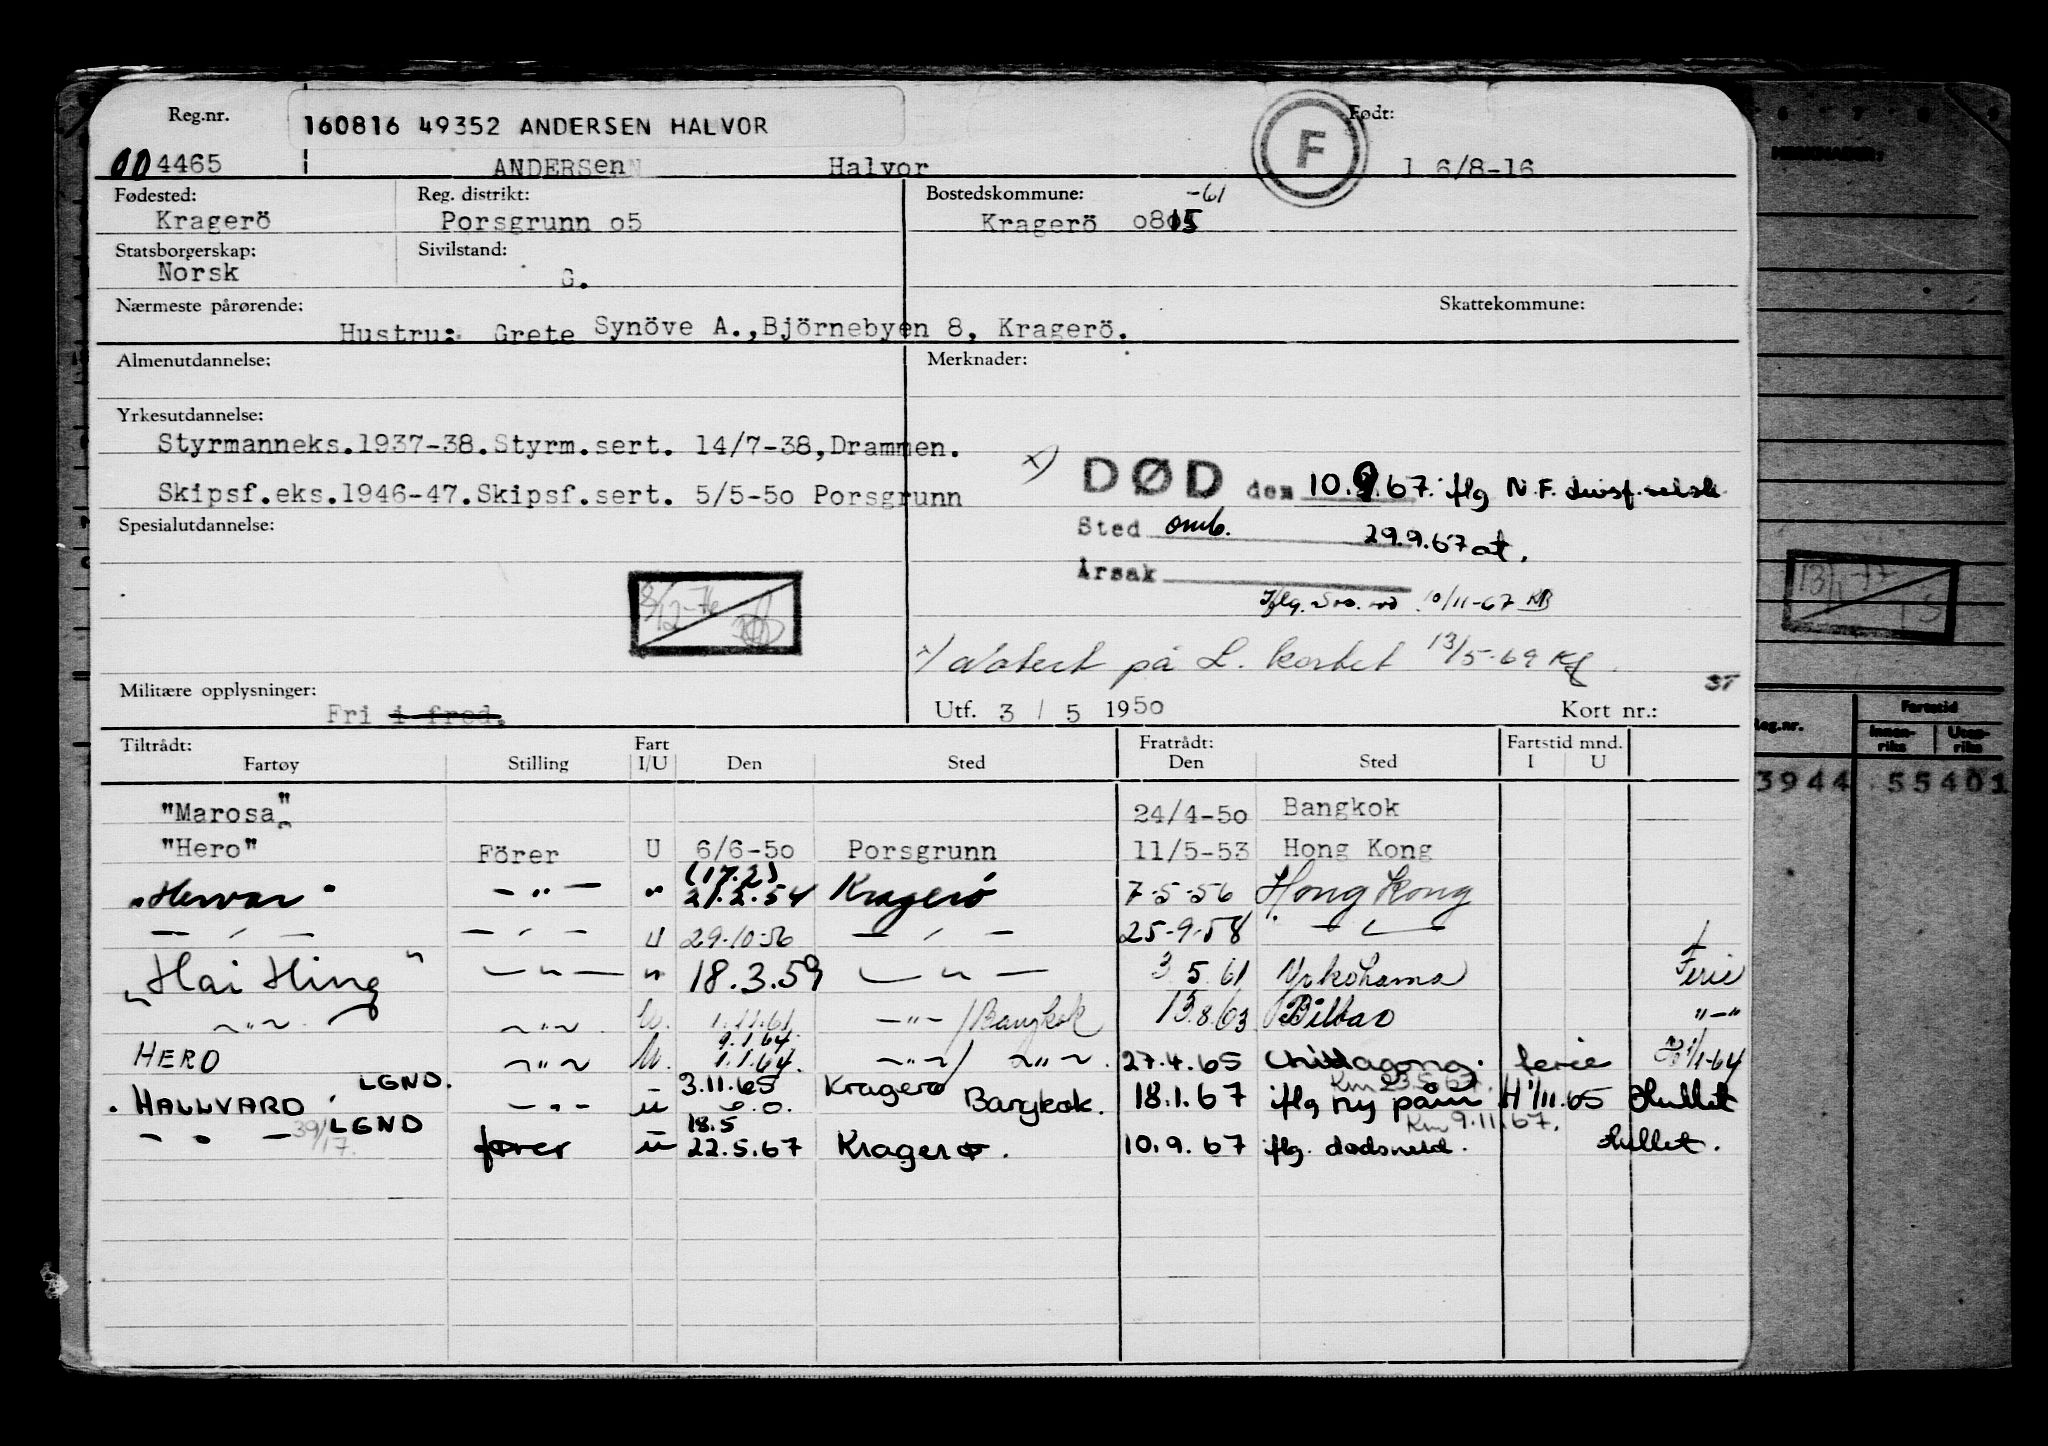 Reg.nr.
160816 49352 ANDERSEN HALVOR
F
Født:
004465 ANDERSEN Halvor 16/8-16
Fødested: Reg. distrikt: Bostedskommune: -61
Kragerö Porsgrunn 05 Kragerö 0815
Statsborgerskap: Sivilstand:
Norsk G.
Nærmeste pårørende: Skattekommune:
Hustru: Grete Synöve A.,Björnebyen 8, Kragerö.
Almenutdannelse: Merknader:
Yrkesutdannelse:
Styrmanneks.1937-38.Styrm.sert. 14/7-38,Drammen.
x) DØD den 10.9.67. iflg N.F.
Skipsf.eks.1946-47.Skipsf.sert. 5/5-50 Porsgrunn
Spesialutdannelse:
Sted omb. 29.9.67 at.
Årsak
8/12-76
13/1-77
Iflg. 10/11-67
x) Notert på L. kortet 13/5-69
Militære opplysninger:
Fri i fred.
Utf. 3 / 5 1950 Kort nr.:
Tiltrådt: Fart Fratrådt: Fartstid mnd.
Fartøy Stilling I/U Den Sted Den Sted I U
Reg.nr. Fartstid
Innen-riks Uten-riks
3944 55401
"Marosa" 24/4-50 Bangkok
"Hero" Förer U 6/6-50 Porsgrunn 11/5-53 Hong Kong
(17.2)
"Hervar" - " - " 21.2.54 Kragerø 7-5-56 Hong Kong
- " - - " - U 29-10-56 - " - 25-9-58 - " -
"Hai Hing" - " - " 18.3.59 - " - 3 5.61 Yokohama Ferie
- " - - " - U. 1.11.61 - " - / Bangkok 13.8.63 Bilbao " - "
9.1.64.
HERO - " - U. 1.1.64. - " - / - " - 27.4.65 Chittagong. ferie 1/1-64
LGND. 3.11.65 Kragerø Km 23.5.67.
"HALLVARD" - " - U Bangkok. 18.1.67 iflg ny påm H 1/11.65 Hullet
LGND 18.5 Km 9.11.67.
- " - 39/17. fører U 22.5.67 Kragerø. 10.9.67 iflg. dødsmeld. Hullet.